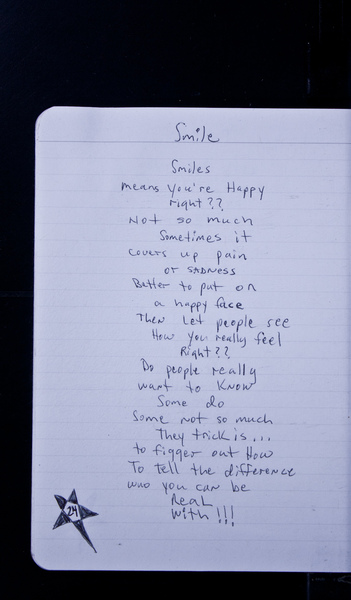 Smile
Smiles
means you're Happy
right??
Not so much
Sometimes it
covers up pain
or SADNESS
Better to put on
a happy face
Then Let people see
How you really feel
Right??
Do people really
want to Know
Some do
Some not so much
They trick is...
to figger out How
To tell the difference
who you can be
Real
with!!!
24